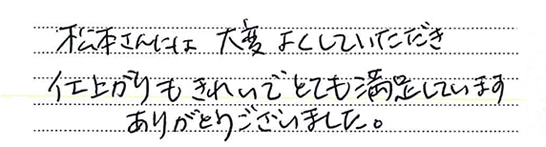 松本さんには 大変よくしていただき
仕上がりもきれいでとても満足しています
ありがとうございました。